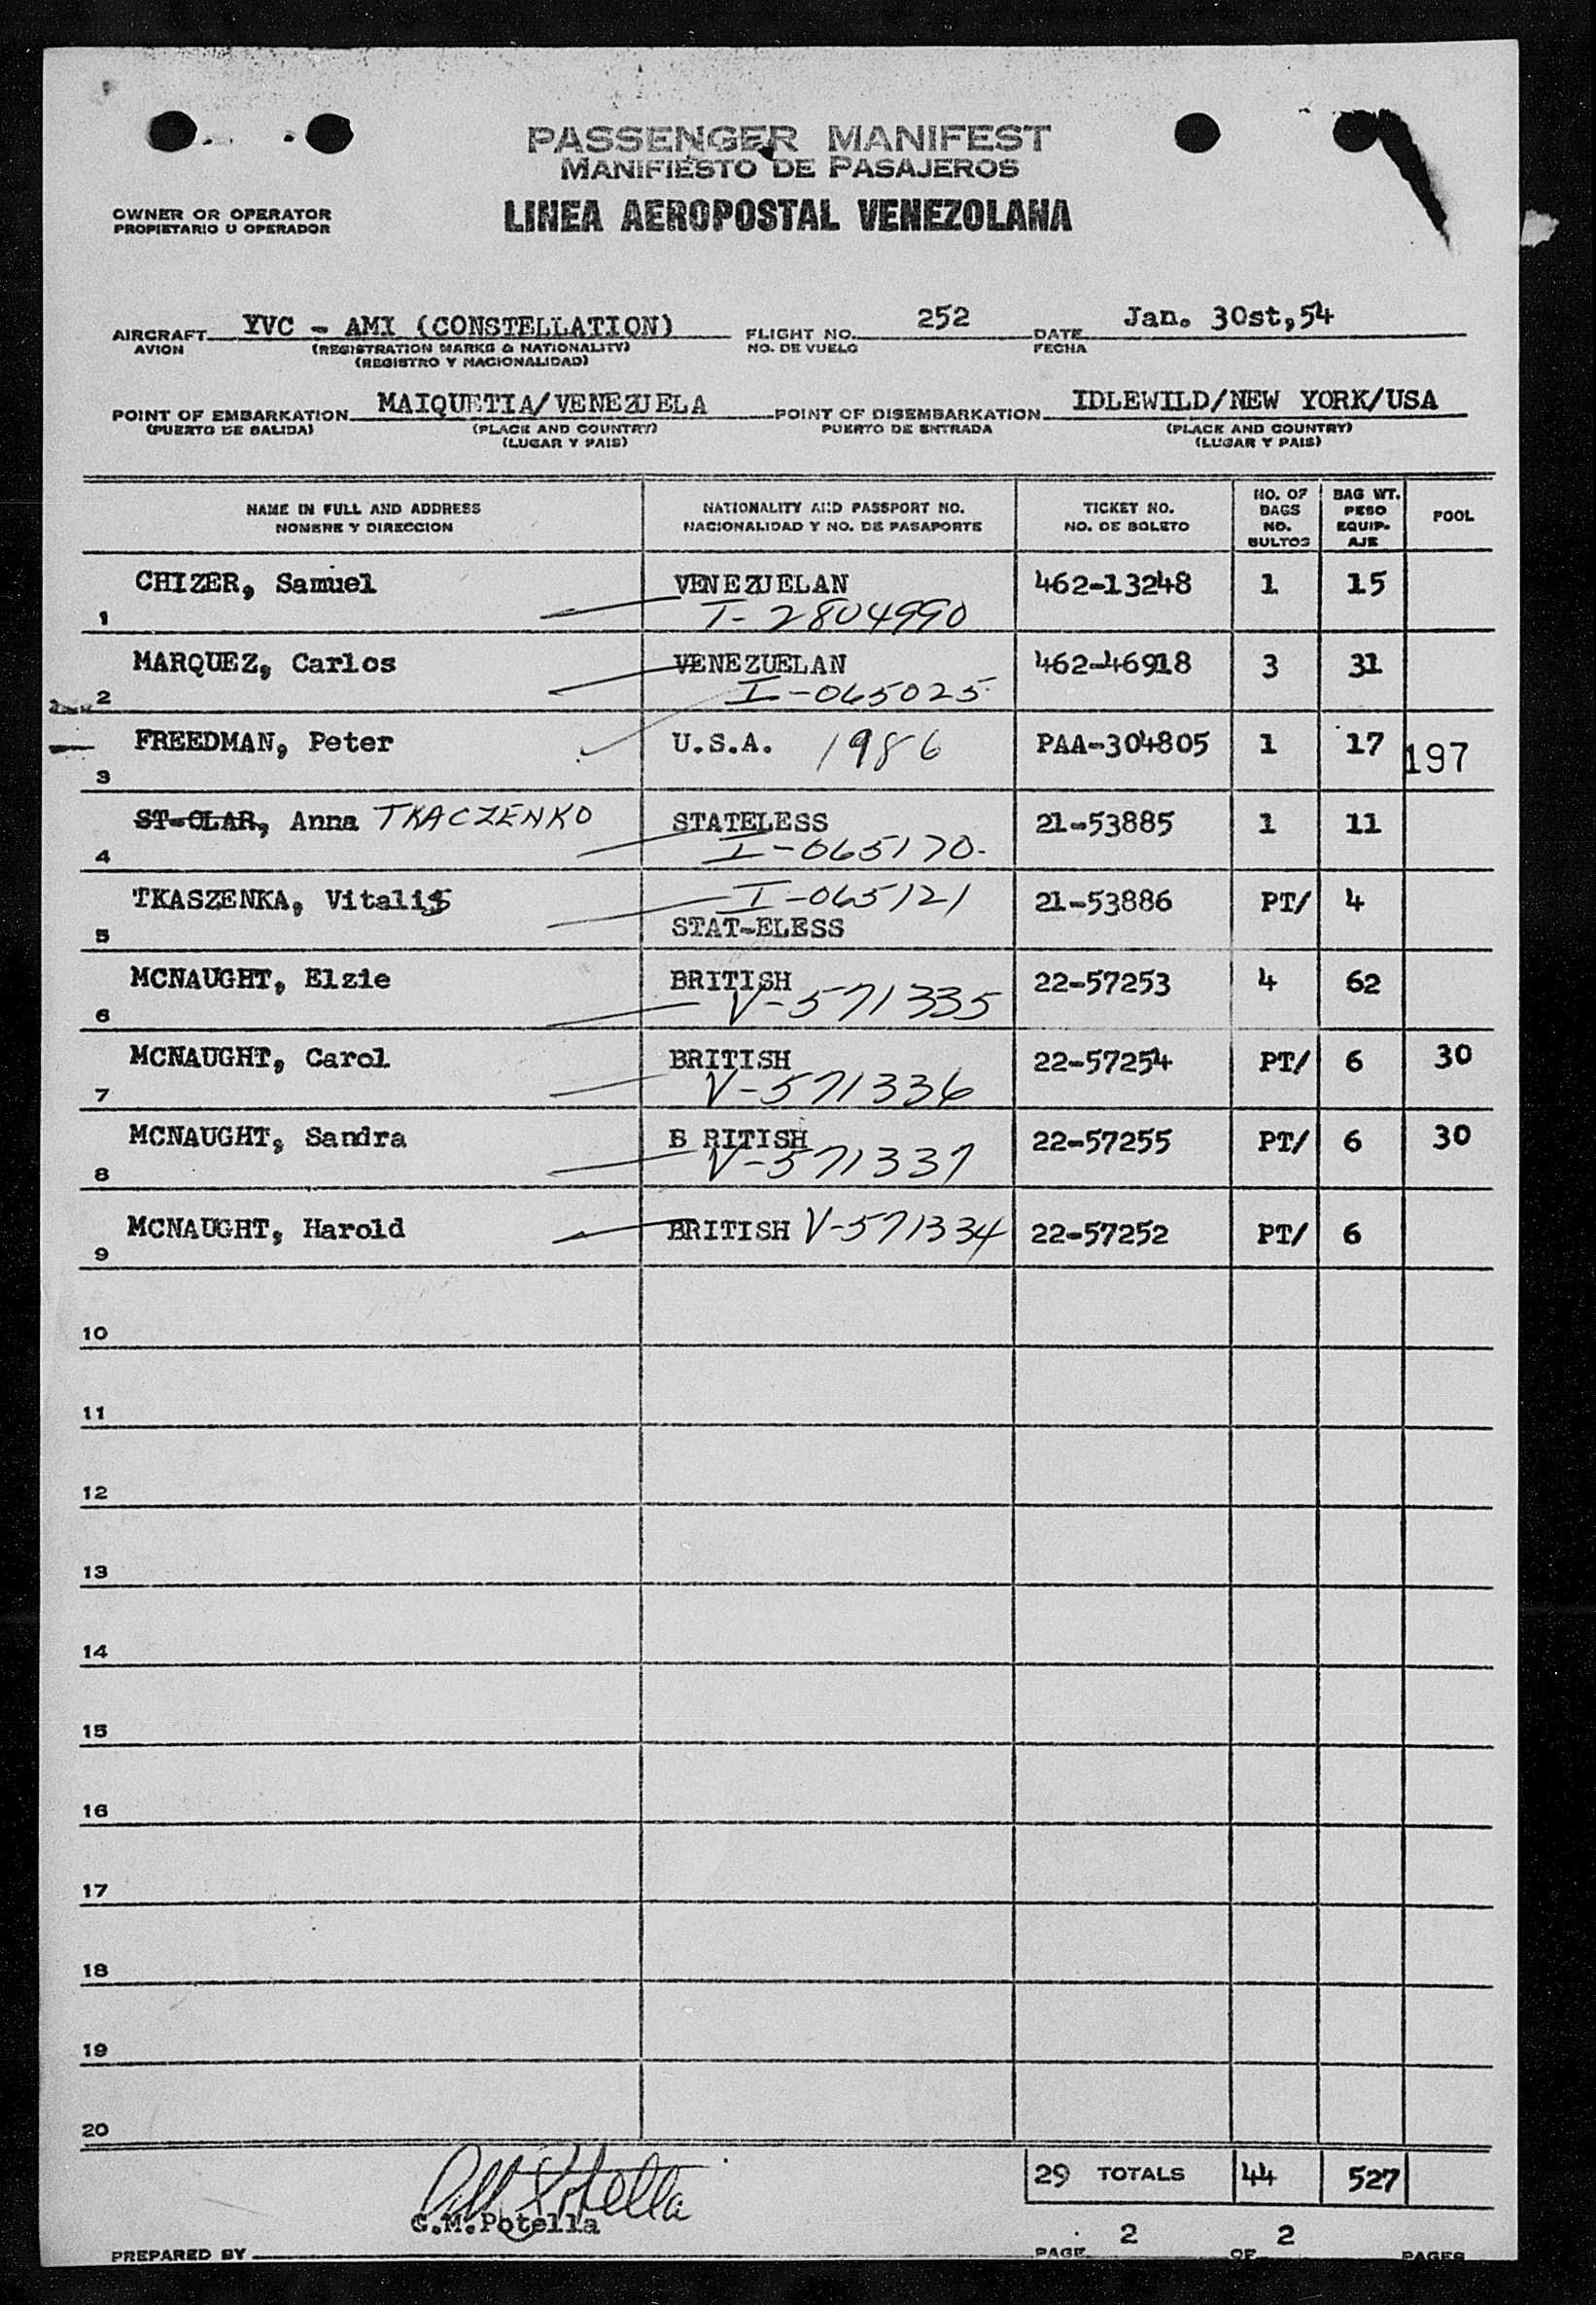 PASSENGER MANIFEST
MANIFIESTO DE PASAJEROS
OWNER OR OPERATOR
PROPIETARIO U OPERADOR
LINEA AEROPOSTAL VENEZOLANA
AIRCRAFT YVC - AMI (CONSTELLATION) FLIGHT NO. 252 DATE Jan. 30st,54
AVION (REGISTRATION MARKS & NATIONALITY) NO. DE VUELO FECHA
(REGISTRO Y NACIONALIDAD)
POINT OF EMBARKATION MAIQUETIA/VENEZUELA POINT OF DISEMBARKATION IDLEWILD/NEW YORK/USA
(PUERTO DE SALIDA) (PLACE AND COUNTRY) PUERTO DE ENTRADA (PLACE AND COUNTRY)
(LUGAR Y PAIS) (LUGAR Y PAIS)
NAME IN FULL AND ADDRESS
NOMBRE Y DIRECCION
NATIONALITY AND PASSPORT NO.
NACIONALIDAD Y NO. DE PASAPORTE
TICKET NO.
NO. DE BOLETO
NO. OF
BAGS
NO.
BULTOS
BAG WT.
PESO
EQUIP-
AJE
POOL
CHIZER, Samuel VENEZUELAN 462-13248 1 15
1 I-2804990
MARQUEZ, Carlos VENEZUELAN 462-46918 3 31
2 I-065025
FREEDMAN, Peter U.S.A. 1986 PAA-304805 1 17 197
3
ST-OLAR, Anna TKACZENKO STATELESS 21-53885 1 11
4 I-065170
TKASZENKA, Vitalis I-065121 21-53886 PT/ 4
5 STAT-ELESS
MCNAUGHT, Elzie BRITISH 22-57253 4 62
6 V-571335
MCNAUGHT, Carol BRITISH 22-57254 PT/ 6 30
7 V-571336
MCNAUGHT, Sandra B RITISH 22-57255 PT/ 6 30
8 V-571337
MCNAUGHT, Harold BRITISH V-571334 22-57252 PT/ 6
9
10
11
12
13
14
15
16
17
18
19
20
29 TOTALS 44 527
G.M.Potella
PREPARED BY
PAGE 2 OF 2 PAGES